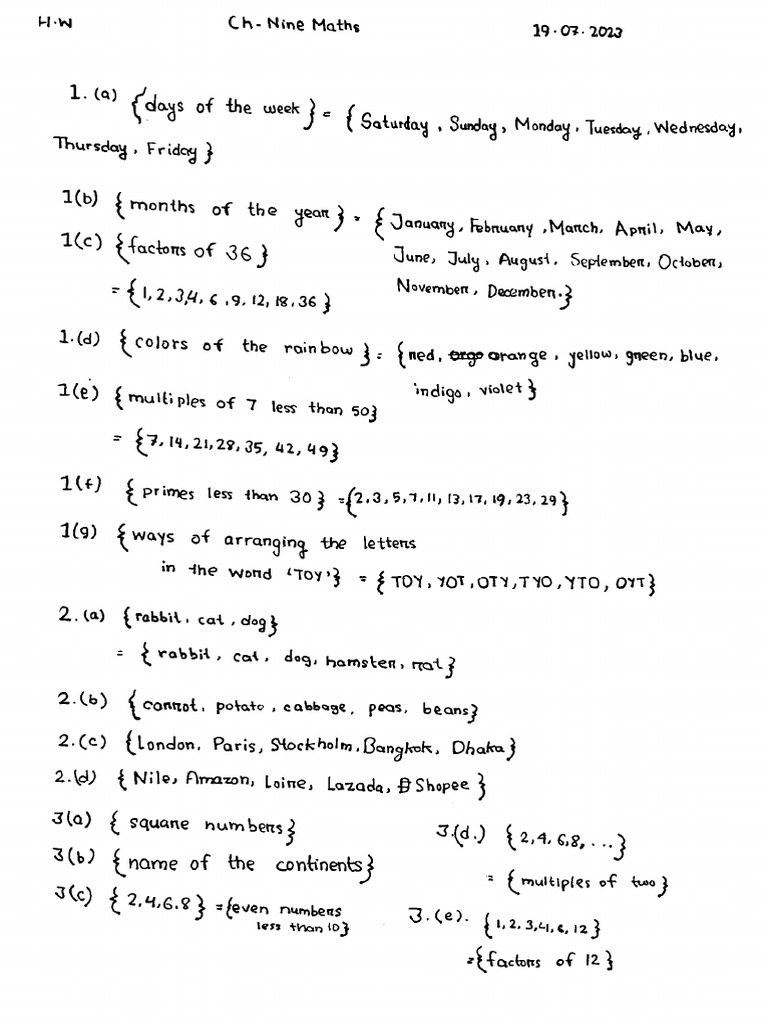 H.W Ch-Nine Maths 19.07.2023
1.(a) {days of the week} = {Saturday, Sunday, Monday, Tuesday, Wednesday,
Thursday, Friday}
1(b) {months of the year} = {January, February, March, April, May,
June, July, August, September, October,
November, December.}
1(c) {factors of 36}
= {1,2,3,4, 6,9, 12, 18, 36}
1.(d) {colors of the rainbow} = {red, orgo orange, yellow, green, blue,
indigo, violet}
1(e) {multiples of 7 less than 50}
= {7, 14, 21, 28, 35, 42, 49}
1(f) {primes less than 30} = {2,3,5,7,11, 13, 17, 19, 23, 29}
1(g) {ways of arranging the letters
in the word 'TOY'} = {TOY, YOT, OTY, TYO, YTO, OYT}
2.(a) {rabbit, cat, dog}
= {rabbit, cat, dog, hamster, rat}
2.(b) {carrot, potato, cabbage, peas, beans}
2.(c) {London, Paris, Stockholm, Bangkok, Dhaka}
2.(d) {Nile, Amazon, Loire, Lazada, Shopee}
3(a) {square numbers}
3(b) {name of the continents}
3(c) {2,4,6.8} = {even numbers
less than 10}
3.(d.) {2,4,6,8, ...}
= {multiples of two}
3.(e). {1,2,3,4,6,12}
={factors of 12}